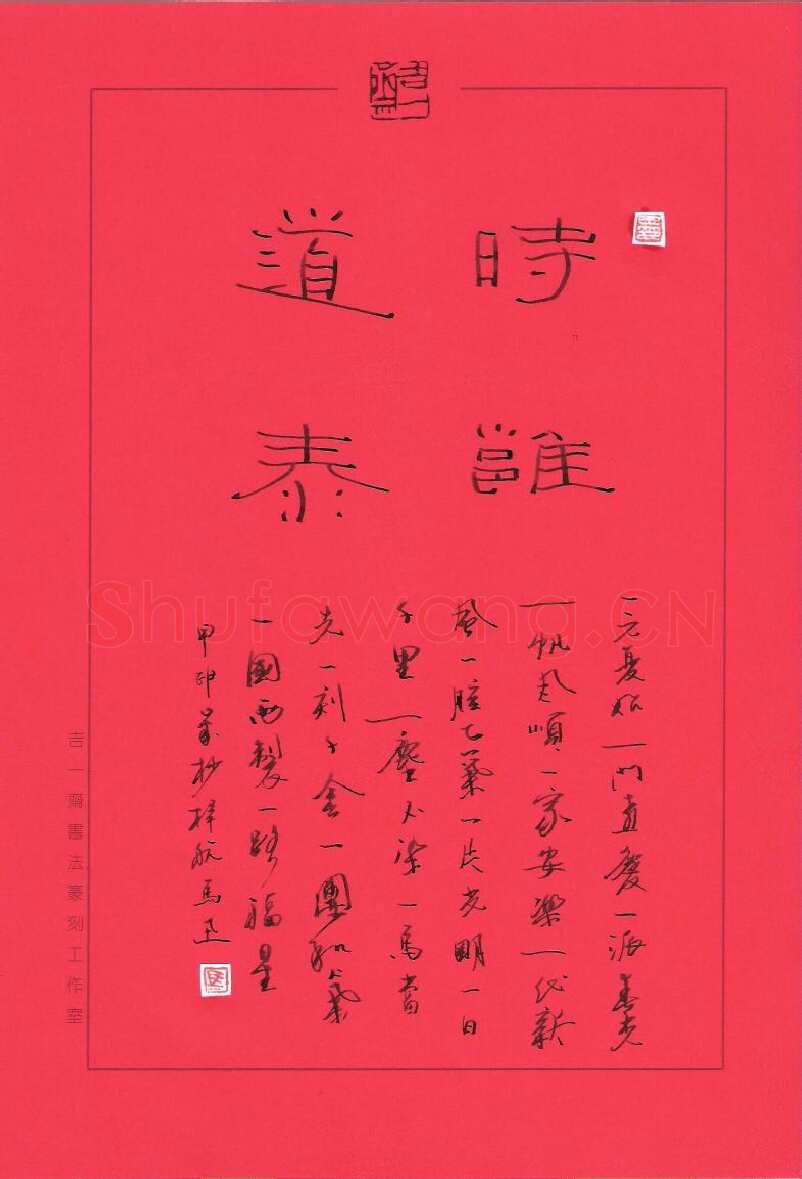 時雝
道泰
一元复始一門喜慶一派春光
一帆風順一家安樂一代新
風一腔正氣一片光明一日
千里一塵不染一馬當
先一刻千金一團和氣
一國两製一路福星
甲申歲杪梓航馬丞
吉一爾書法篆刻工作室
Shufawang.CN